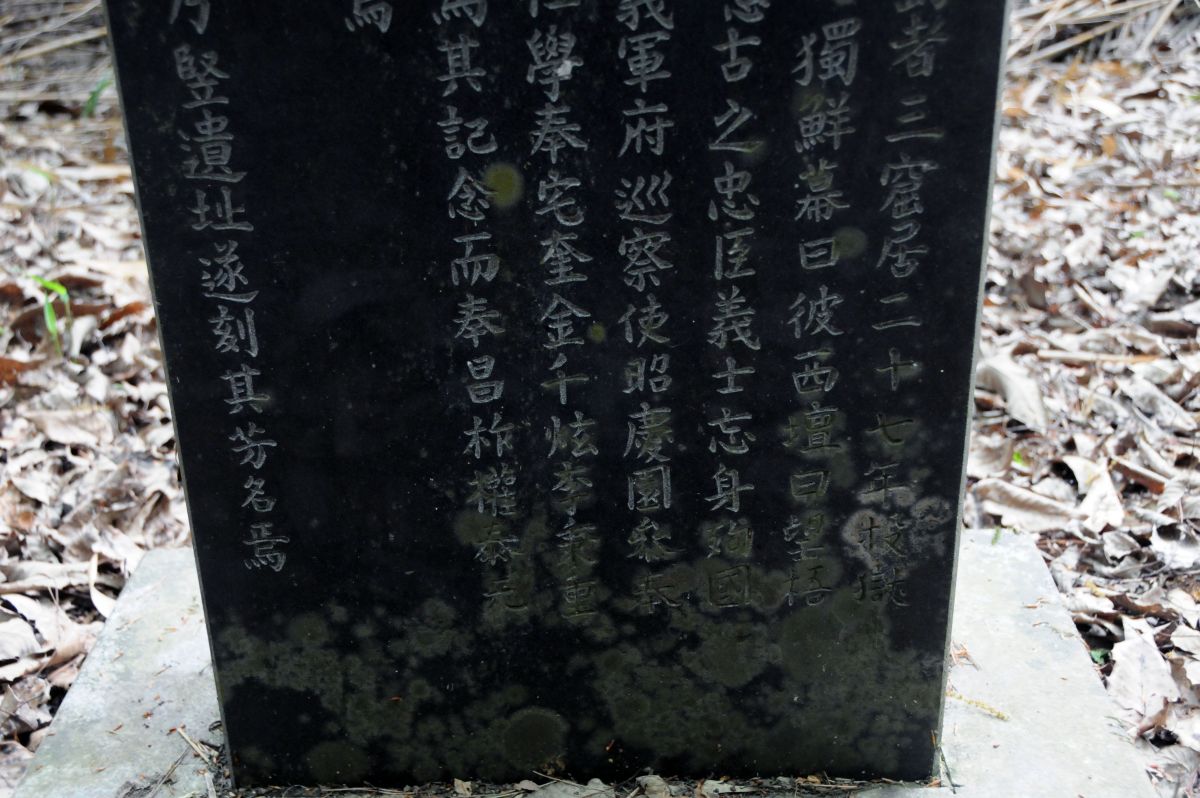 者三窟居二十七年
獨鮮幕曰彼西壇曰望
古之忠臣義士忘身殉國
義軍府巡察使昭慶園
學奉宅奎金千炫李秉重
其記念而奉昌柞權泰元
焉
乃竪遺址遂刻其芳名焉